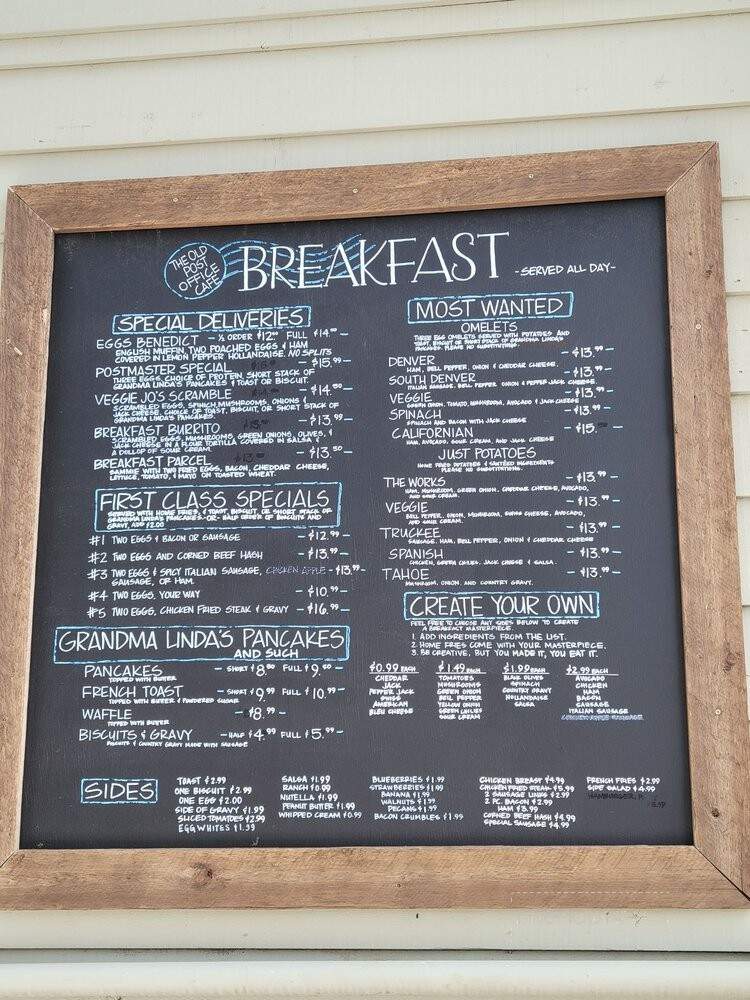 THE OLD
POST
OFFICE
CAFE
BREAKFAST
-SERVED ALL DAY-
SPECIAL DELIVERIES
EGGS BENEDICT - ½ ORDER $12.00 FULL $14.00 -
ENGLISH MUFFIN, TWO POACHED EGGS & HAM
COVERED IN LEMON PEPPER HOLLANDAISE. NO SPLITS
POSTMASTER SPECIAL - $15.99 -
THREE EGGS, CHOICE OF PROTEIN, SHORT STACK OF
GRANDMA LINDA'S PANCAKES & TOAST OR BISCUIT.
VEGGIE JO'S SCRAMBLE - $14.50 -
SCRAMBLED EGGS, SPINACH, MUSHROOMS, ONIONS &
JACK CHEESE, CHOICE OF TOAST, BISCUIT, OR SHORT STACK OF
GRANDMA LINDA'S PANCAKES.
BREAKFAST BURRITO - $13.99 -
SCRAMBLED EGGS, MUSHROOMS, GREEN ONIONS, OLIVES, &
JACK CHEESE IN A FLOUR TORTILLA COVERED IN SALSA &
A DOLLOP OF SOUR CREAM.
BREAKFAST PARCEL - $13.50 -
SAMMIE WITH TWO FRIED EGGS, BACON, CHEDDAR CHEESE,
LETTUCE, TOMATO, & MAYO ON TOASTED WHEAT.
FIRST CLASS SPECIALS
SERVED WITH HOME FRIES, & TOAST, BISCUIT, OR SHORT STACK OF
GRANDMA LINDA'S PANCAKES -OR- HALF ORDER OF BISCUITS AND
GRAVY, ADD $2.00
#1 TWO EGGS & BACON OR SAUSAGE - $12.99 -
#2 TWO EGGS AND CORNED BEEF HASH - $13.99 -
#3 TWO EGGS & SPICY ITALIAN SAUSAGE, CHICKEN APPLE - $13.99 -
SAUSAGE, OR HAM.
#4 TWO EGGS, YOUR WAY - $10.99 -
#5 TWO EGGS, CHICKEN FRIED STEAK & GRAVY - $16.99 -
GRANDMA LINDA'S PANCAKES
AND SUCH
PANCAKES - SHORT $8.50 FULL $9.50 -
TOPPED WITH BUTTER
FRENCH TOAST - SHORT $9.99 FULL $10.99 -
TOPPED WITH BUTTER & POWDERED SUGAR
WAFFLE - $8.99 -
TOPPED WITH BUTTER
BISCUITS & GRAVY - HALF $4.99 FULL $5.99 -
BISCUITS & COUNTRY GRAVY MADE WITH SAUSAGE
MOST WANTED
OMELETS
THREE EGG OMELETS SERVED WITH POTATOES AND
TOAST, BISCUIT OR SHORT STACK OF GRANDMA LINDA'S
PANCAKES. PLEASE NO SUBSTITUTIONS.
DENVER - $13.99 -
HAM, BELL PEPPER, ONION & CHEDDAR CHEESE.
SOUTH DENVER - $13.99 -
ITALIAN SAUSAGE, BELL PEPPER, ONION & PEPPER JACK CHEESE.
VEGGIE - $13.99 -
GREEN ONION, TOMATO, MUSHROOM, AVOCADO & JACK CHEESE
SPINACH - $13.99 -
SPINACH AND BACON WITH JACK CHEESE
CALIFORNIAN - $15. -
HAM, AVOCADO, SOUR CREAM, AND JACK CHEESE
JUST POTATOES
HOME FRIED POTATOES & SAUTÉED INGREDIENTS
PLEASE NO SUBSTITUTIONS
THE WORKS - $13.99 -
HAM, MUSHROOM, GREEN ONION, CHEDDAR CHEESE, AVOCADO,
AND SOUR CREAM.
VEGGIE - $13.99 -
BELL PEPPER, ONION, MUSHROOM, SWISS CHEESE, AVOCADO,
AND SOUR CREAM.
TRUCKEE - $13.99 -
SAUSAGE, HAM, BELL PEPPER, ONION & CHEDDAR CHEESE
SPANISH - $13.99 -
CHICKEN, GREEN CHILIES, JACK CHEESE & SALSA.
TAHOE - $13.99 -
MUSHROOM, ONION, AND COUNTRY GRAVY.
CREATE YOUR OWN
FEEL FREE TO CHOOSE ANY SIDES BELOW TO CREATE
A BREAKFAST MASTERPIECE.
1. ADD INGREDIENTS FROM THE LIST.
2. HOME FRIES COME WITH YOUR MASTERPIECE.
3. BE CREATIVE, BUT YOU MADE IT, YOU EAT IT.
$0.99 EACH
CHEDDAR
JACK
PEPPER JACK
SWISS
AMERICAN
BLEU CHEESE
$1.49 EACH
TOMATOES
MUSHROOMS
GREEN ONION
BELL PEPPER
YELLOW ONION
GREEN CHILIES
SOUR CREAM
$1.99 EACH
BLACK OLIVES
SPINACH
COUNTRY GRAVY
HOLLANDAISE
SALSA
$2.99 EACH
AVOCADO
CHICKEN
HAM
BACON
SAUSAGE
ITALIAN SAUSAGE
CHICKEN APPLE SAUSAGE
SIDES
TOAST $2.99
ONE BISCUIT $2.99
ONE EGG $2.00
SIDE OF GRAVY $1.99
SLICED TOMATOES $2.99
EGG WHITES $1.99
SALSA $1.99
RANCH $0.99
NUTELLA $1.99
PEANUT BUTTER $1.99
WHIPPED CREAM $0.99
BLUEBERRIES $1.99
STRAWBERRIES $1.99
BANANA $1.99
WALNUTS $1.99
PECANS $1.99
BACON CRUMBLES $1.99
CHICKEN BREAST $4.99
CHICKEN FRIED STEAK $5.99
2 SAUSAGE LINKS $2.99
2 PC. BACON $2.99
HAM $3.99
CORNED BEEF HASH $4.99
SPECIAL SAUSAGE $4.99
FRENCH FRIES $2.99
SIDE SALAD $4.99